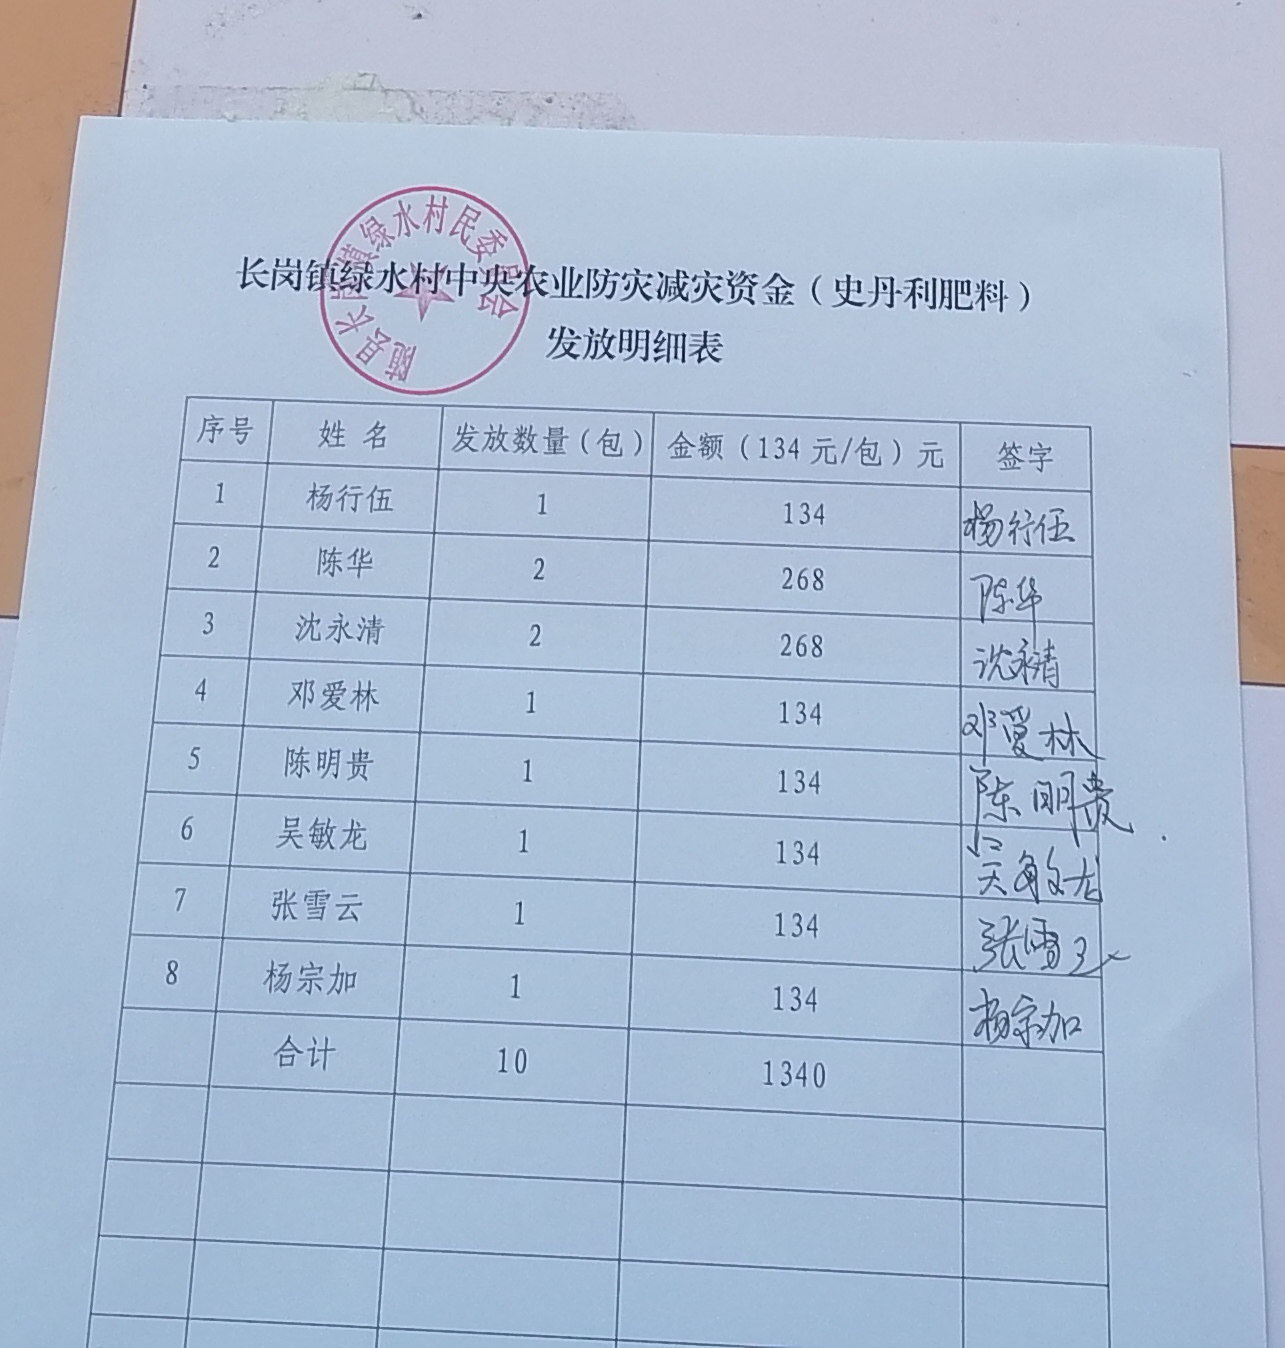 随县长岗镇绿水村民委员会
长岗镇绿水村中央农业防灾减灾资金（史丹利肥料）
发放明细表
序号 姓 名 发放数量（包） 金额（134 元/包）元 签字
1 杨行伍 1 134 杨行伍
2 陈华 2 268 陈华
3 沈永清 2 268 沈永清
4 邓爱林 1 134 邓爱林
5 陈明贵 1 134 陈明贵
6 吴敏龙 1 134 吴敏龙
7 张雪云 1 134 张雪云
8 杨宗加 1 134 杨宗加
合计 10 1340